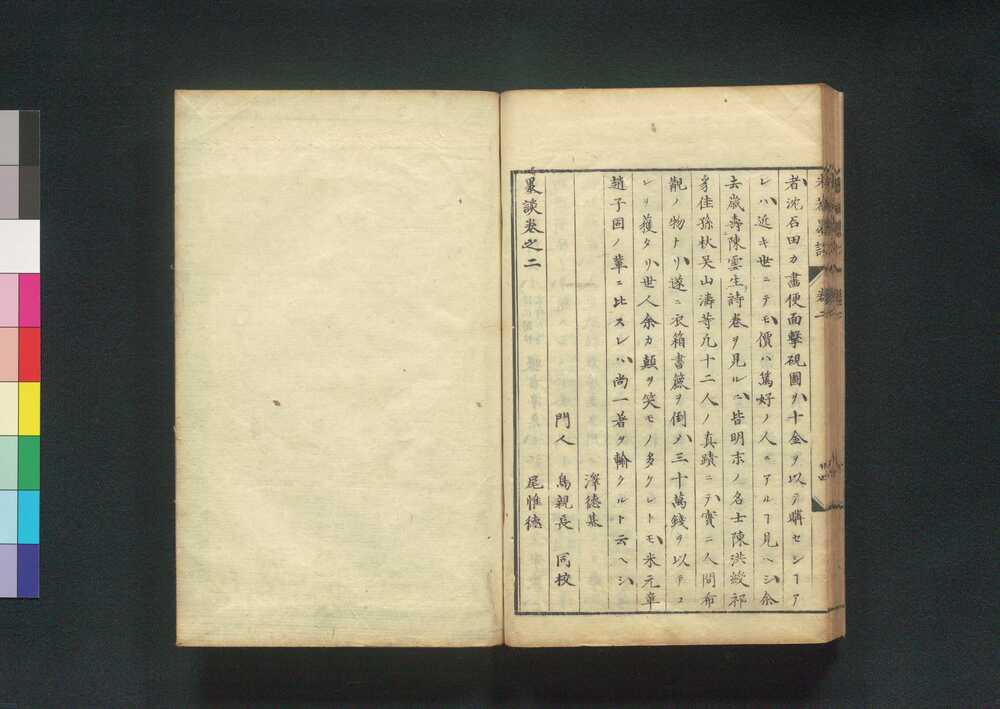 者沈石田カ畫便面撃硯圖ヲ十金ヲ以テ購セシヿア
レハ近キ世ニテモ價ハ篤好ノ人ニアルヿ見ヘシ余
去歳壽陳雲生詩巻ヲ見ルニ皆明末ノ名士陳洪綬祁
豸佳孫杕吴山濤等凡十二人ノ真蹟ニテ實ニ人間希
觀ノ物ナリ遂ニ衣箱書簏ヲ倒メ三十萬錢ヲ以テコ
レヲ獲タリ世人余カ顛ヲ笑モノ多クレトモ米元章
趙子固ノ輩ニ比スレハ尚一著ヲ輸クルト云ヘシ
澤德基
門人 島親長 同校
尾惟德
墨談巻之二